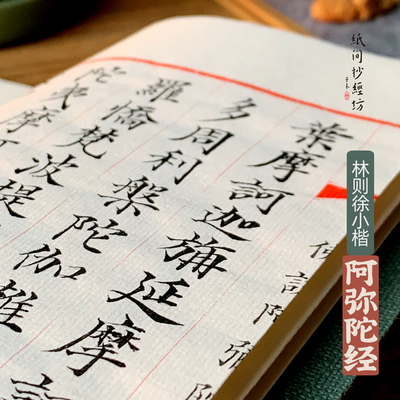 紙間抄經坊
葉摩訶迦旃延摩
多周利槃陀伽
羅憍梵波提
陀夷摩
林则徐小楷
阿弥陀经